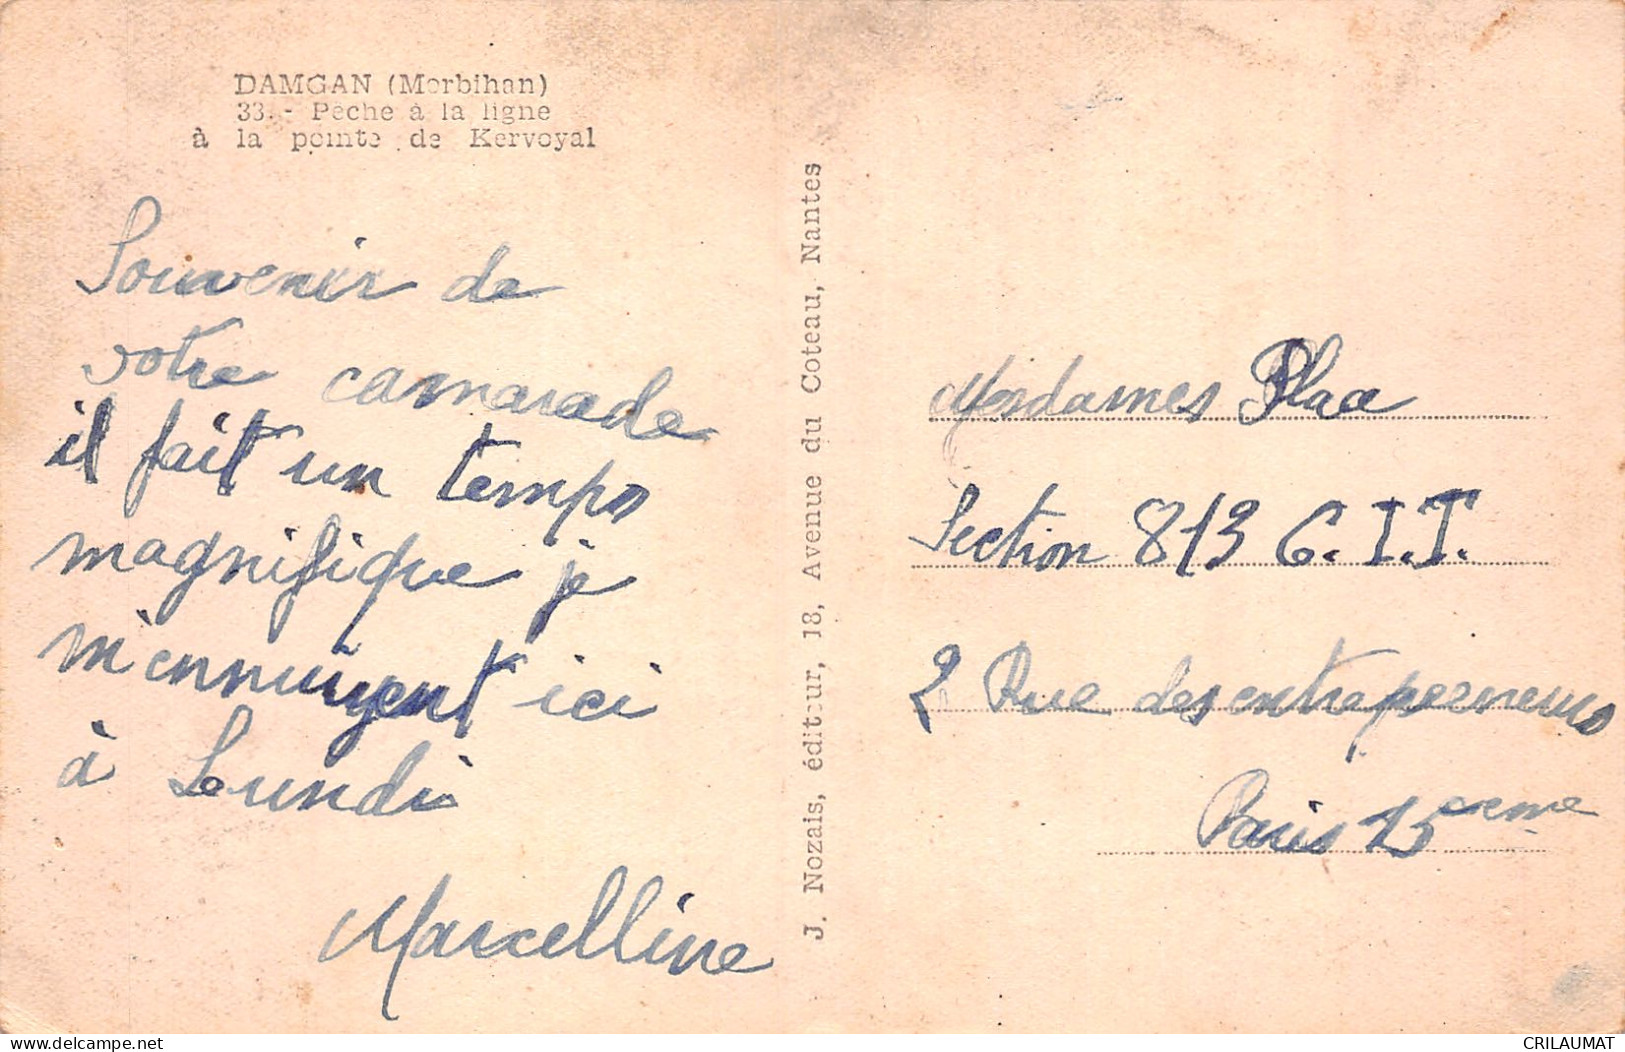 DAMGAN (Morbihan)
33. - Pêche à la ligne
à la pointe de Kervoyal
Souvenir de
votre camarade
il fait un temps
magnifique je
m'ennuiyent ici
à Lundi
Marcelline
J. Nozais, éditeur, 18, Avenue du Coteau, Nantes
Mesdames Plaa
Section 813 C.I.T.
2 Rue des entreperneurs
Paris 15 eme
delcampe.net
CRILAUMAT